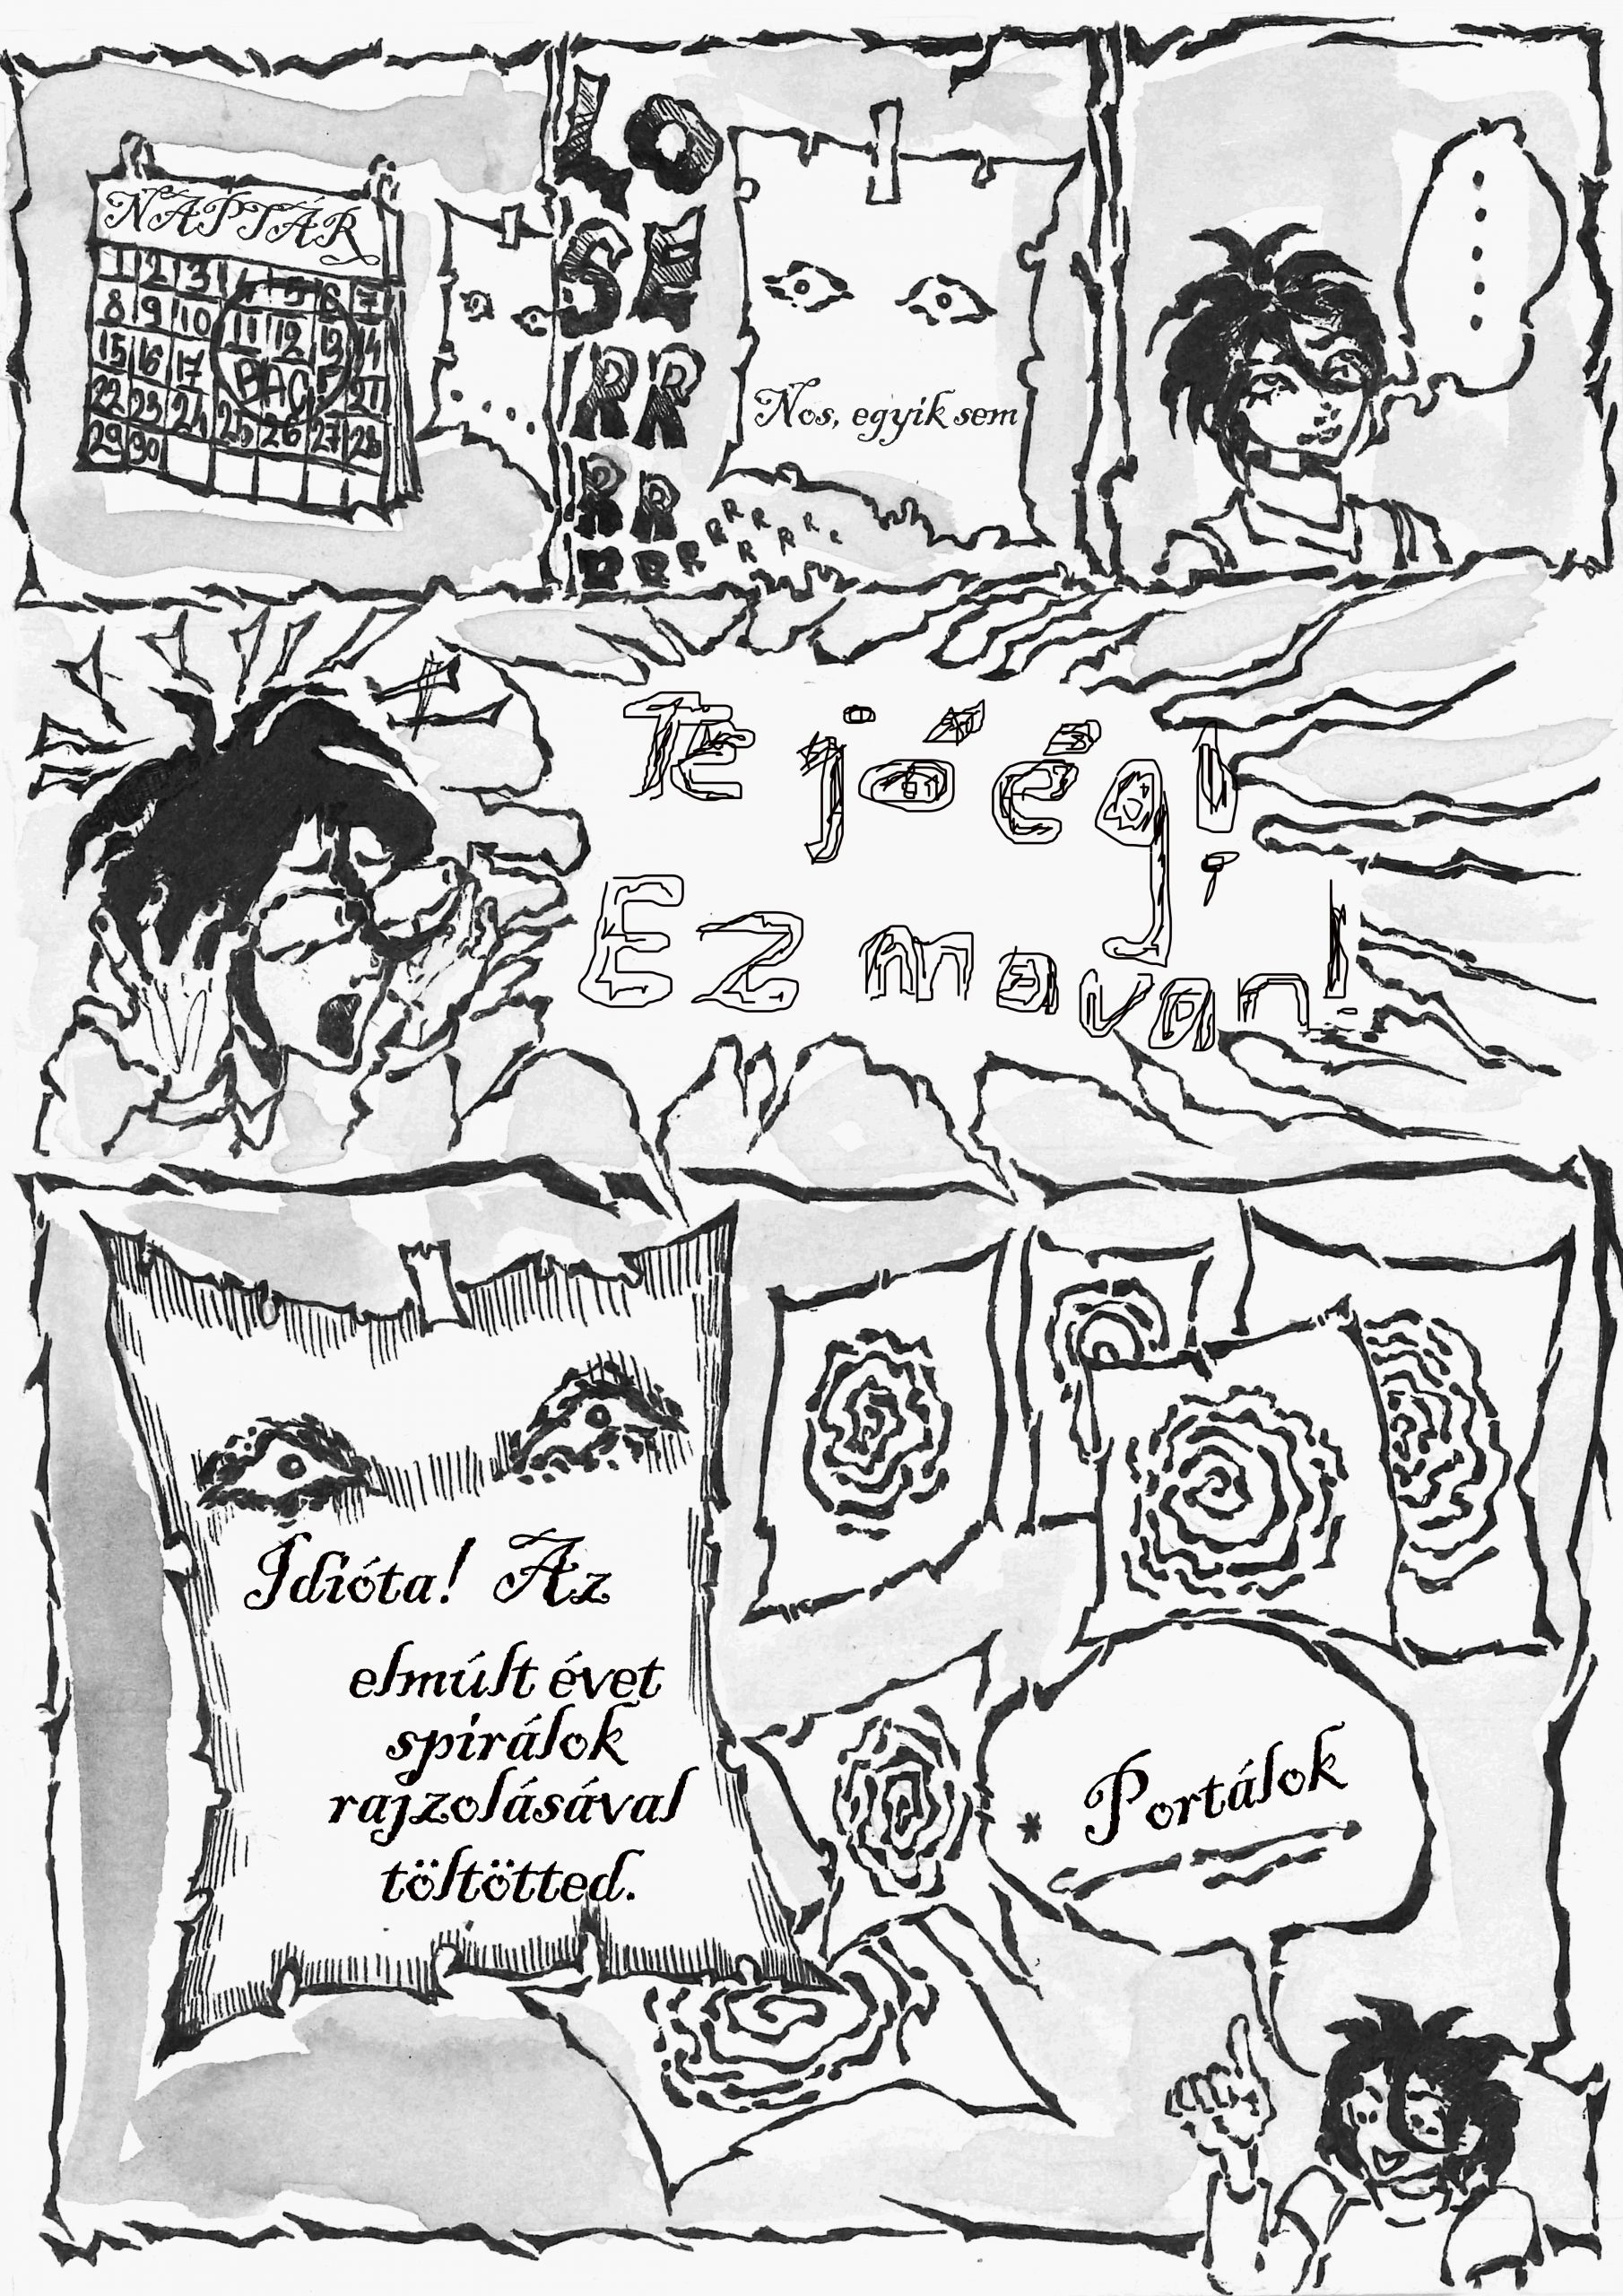 NAPTÁR
1 2 3 4 5 6 7
8 9 10 11 12 13 14
15 16 17 BAC! 21
22 23 24 25 26 27 28
29 30
LO
SE
RR
RR
RR
R R R R R R R R
Nos, egyik sem
.....
Te jó ég!
Ez ma van!
Idióta! Az
elmúlt évet
spirálok
rajzolásával
töltötted.
* Portálok